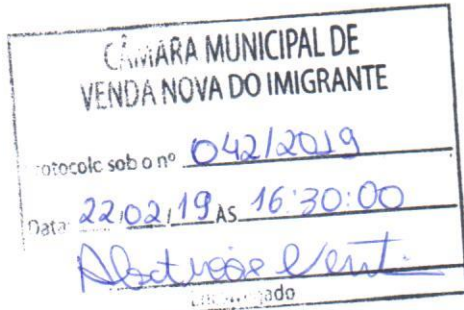 CÂMARA MUNICIPAL DE
VENDA NOVA DO IMIGRANTE
rotocolo sob o nº 042/2019
Data: 22/02/19 AS 16:30:00